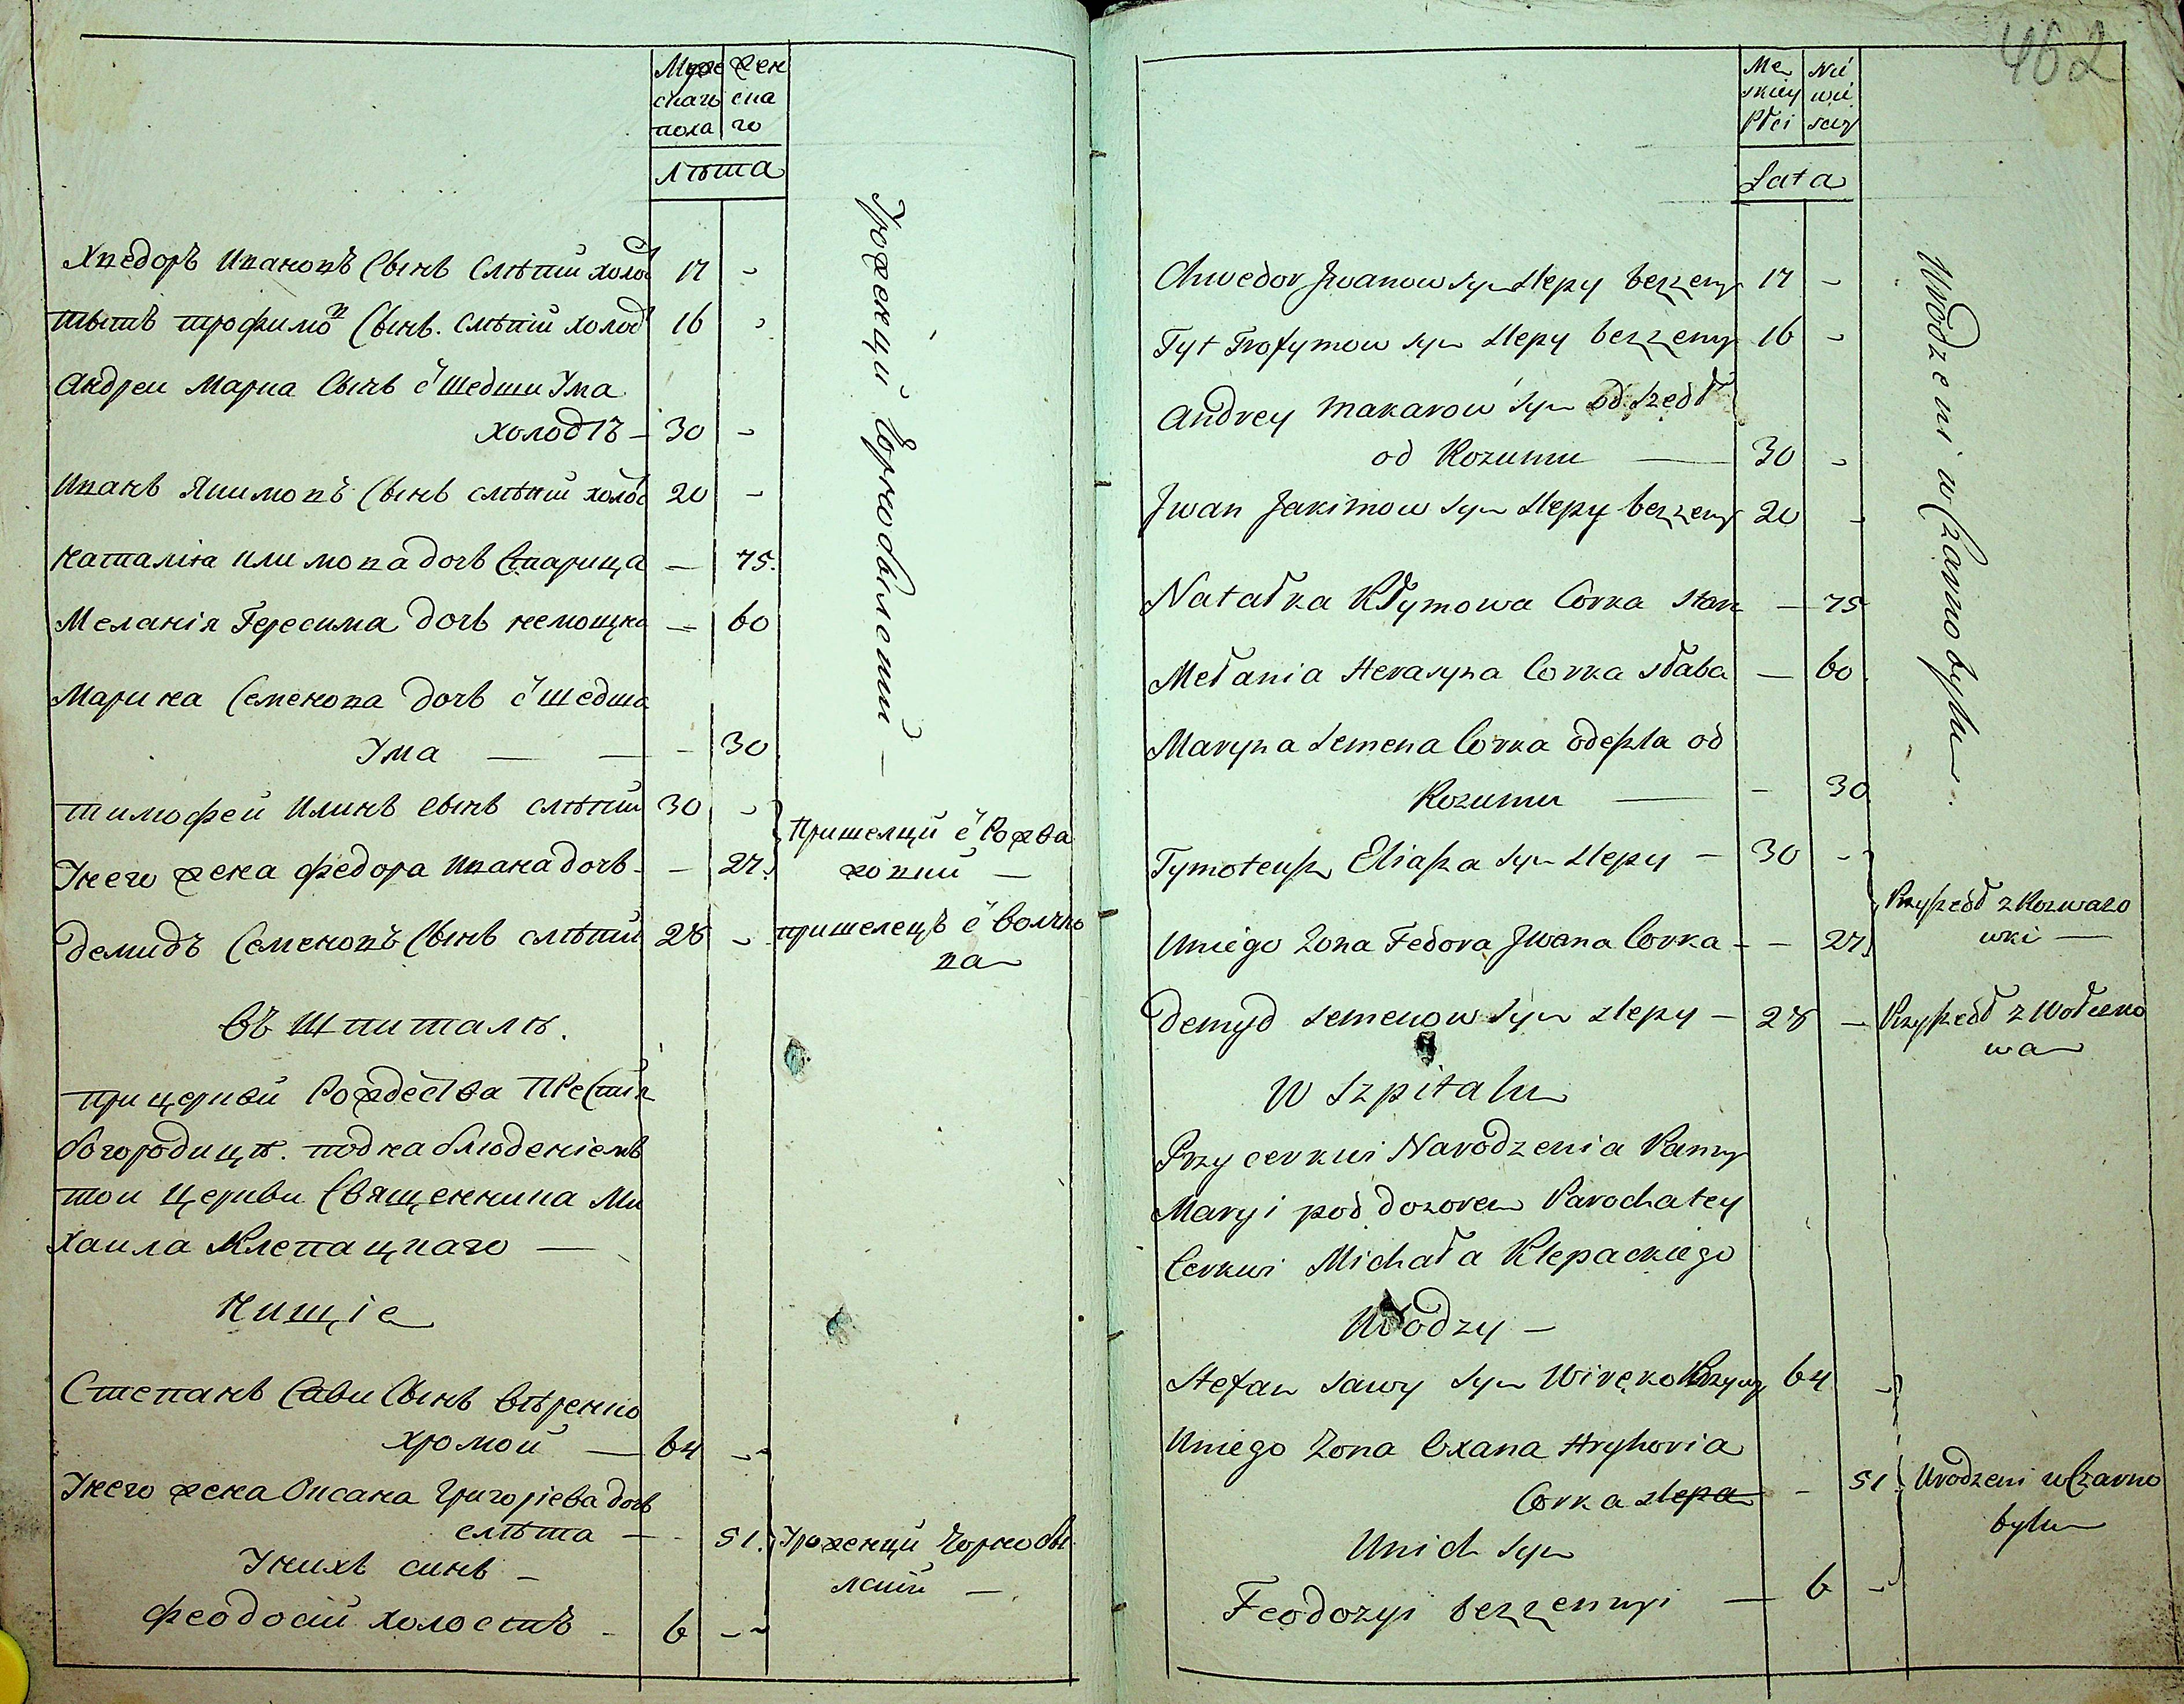 Муже Жен
скагѡ ска
пола го
Лѣта
Хведоръ Ивановъ Сынъ Слѣпий холос 17 -
Тытъ Трофимов Сынъ. слѣпій холос 16 -
Андреи Марка Сынъ ѿшедши Ума
холостъ - 30 -
Иванъ Якимовъ Сынъ слѣпий холос 20 -
Наталка Климова дочь Старица - 75.
Меланія Герасима дочь немощна - 60
Марина Семенова дочь ѿшедша
Ума - - - 30
Тимофей Илинъ сынъ слѣпий 30 -
Унего жена Федора Ивана дочь - - 27.
Демидъ Семеновъ Сынъ слѣпий 28 -
Уроженци Чорнобилский -
Пришелци ѿ Розва
жовки -
пришелецъ ѿ Волчко
ва
Въ Шпиталѣ.
При церкви Рождества Престія
богородици. под наблюденіемъ
тои Церкви Священника Ми
хаила Клепацкаго -
Нищіе
Степанъ Сави Сынъ Вѣренко
хромой - 64 -
Унего жена Оксана Григоріева дочь
слѣпа - - 51.
Унихъ синъ -
Феодосий холостъ - 6 -
Уроженци Чорнобы
лский -
462
Me Nie
skiey wie
płci sciey
Lata
Chwedor Jwanow syn slepy bezzeny 17 -
Tyt Trofymow syn slepy bezzeny 16 -
Andrey Makarow syn odszedł
od Rozumu - 30 -
Jwan Jakimow syn slepy bezzeny 20 -
Natałka Kłymowa Corka star - 75
Mełania Herasyna Corka słaba - 60
Maryna Semena Corka odeszla od
Rozumu - - 30
Tymoteusz Eliasza syn slepy - 30 -
Uniego Zona Fedora Jwana Corka - - 27.
Demyd Semenow syn slepy - 28 -
Urodzeni w Czarnobylu
Przyszedł z Rozwazo
wki -
Przyszedł z Wołczko
wa
W Szpitalu
Przy cerkwi Narodzenia Panny
Maryi pod dozorem Parocha tey
Cerkwi Michała Klepackiego
Ubodzy -
Stefan Sawy syn Wirenko Krzywy 64 -
Uniego Zona Oxana Hryhoria
Corka slepa - 51.
Unich syn
Feodozyi bezzennyi - 6 -
Urodzeni w Czarno
bylu